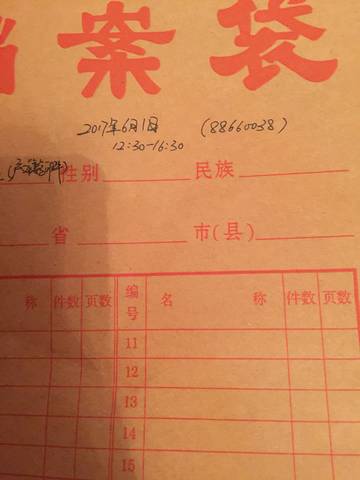 档案袋
2017年6月1日 (88660038)
12:30-16:30
性别 民族
省 市(县)
称 件数 页数 编号 名 称 件数 页数
11
12
13
14
15